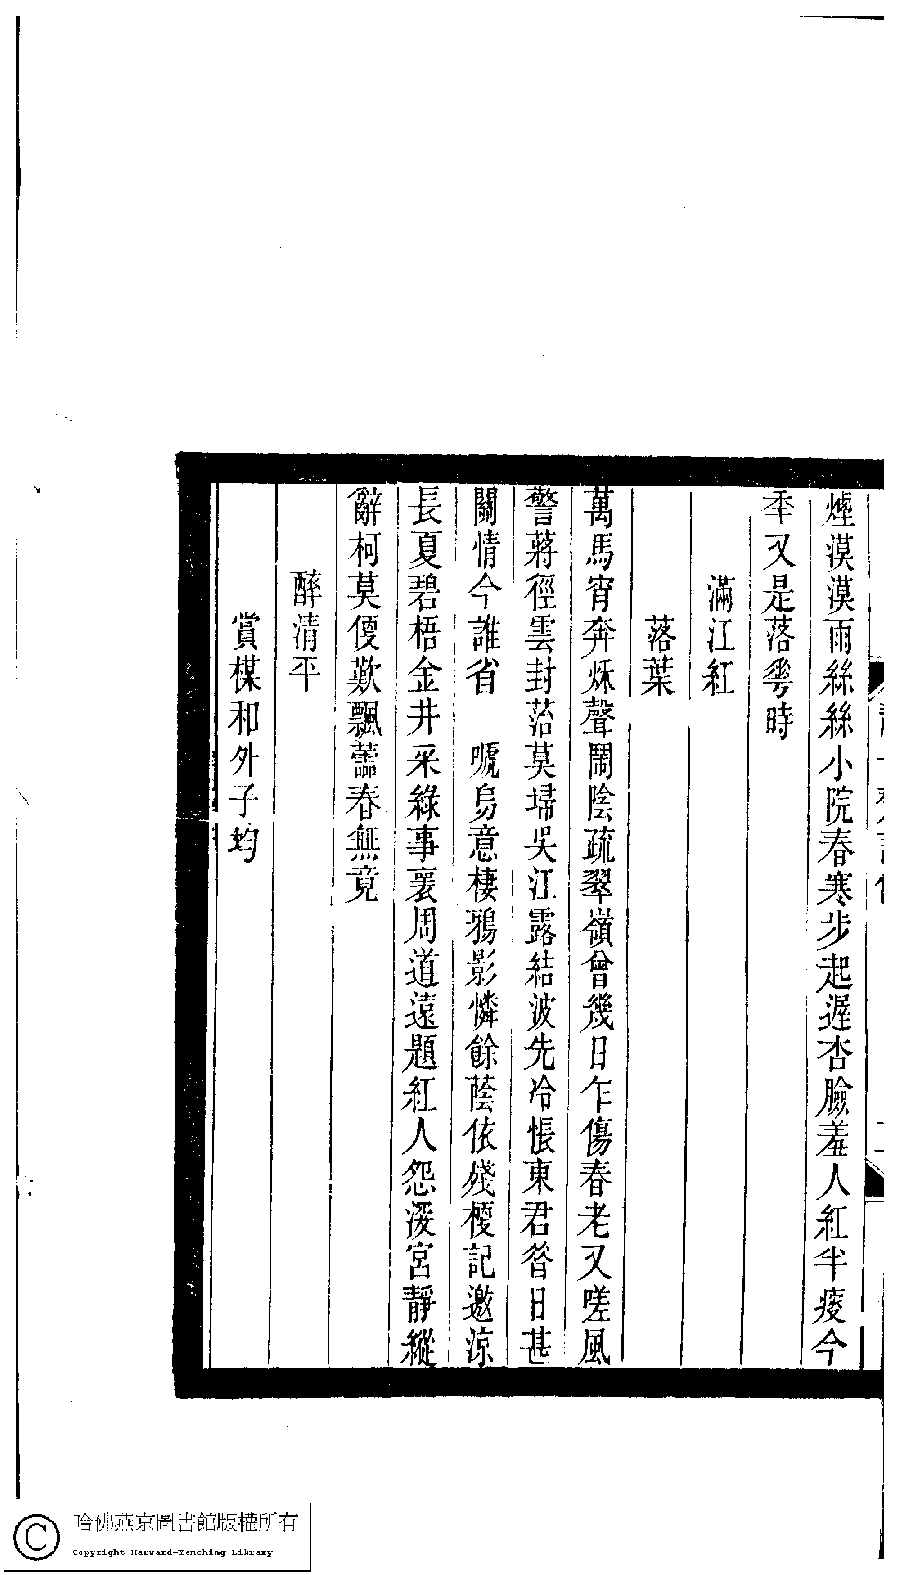 煙漠漠雨絲絲小院春寒步起遲杏臉羞人紅半痠今
年又是落雩時
滿江紅
落葉
萬馬宵奔秌聲鬧陰疏翠嶺曾幾日乍傷春老又嗟風
警蔣徑雲封苔莫埽吳江露結波先冷悵東君昝日甚
關情今誰省　嗁烏意棲鴉影憐餘蔭依殘榎記邀涼
長夏碧梧金井采綠事襄周道遠題紅人怨湥宮靜縱
辭柯莫傻歎飄蘦春無竟
醉清平
賞楳和外子均
哈佛燕京圖書館版權所有
Copyright Harvard-Yenching Library